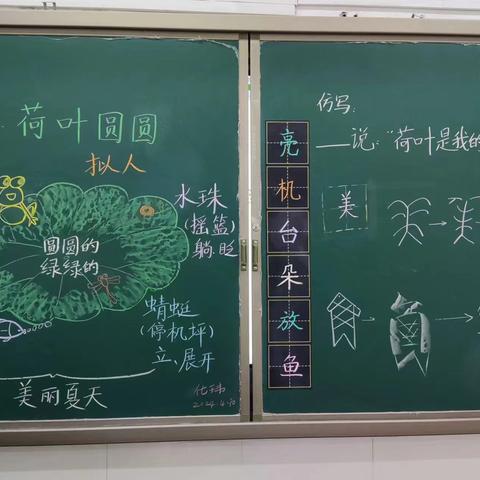 荷叶圆圆
拟人
圆圆的
绿绿的
水珠
(摇篮)
躺、眨
蜻蜓
(停机坪)
立、展开
美丽夏天
2024.4.
仿写:
——说:“荷叶是我的
亮
机
台
朵
放
鱼
美